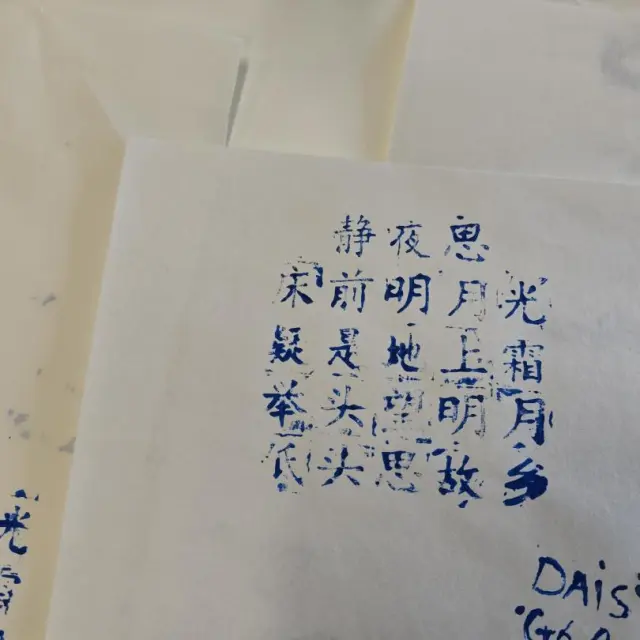 静夜思
床前明月光
疑是地上霜
举头望明月
低头思故乡
光
DAIS